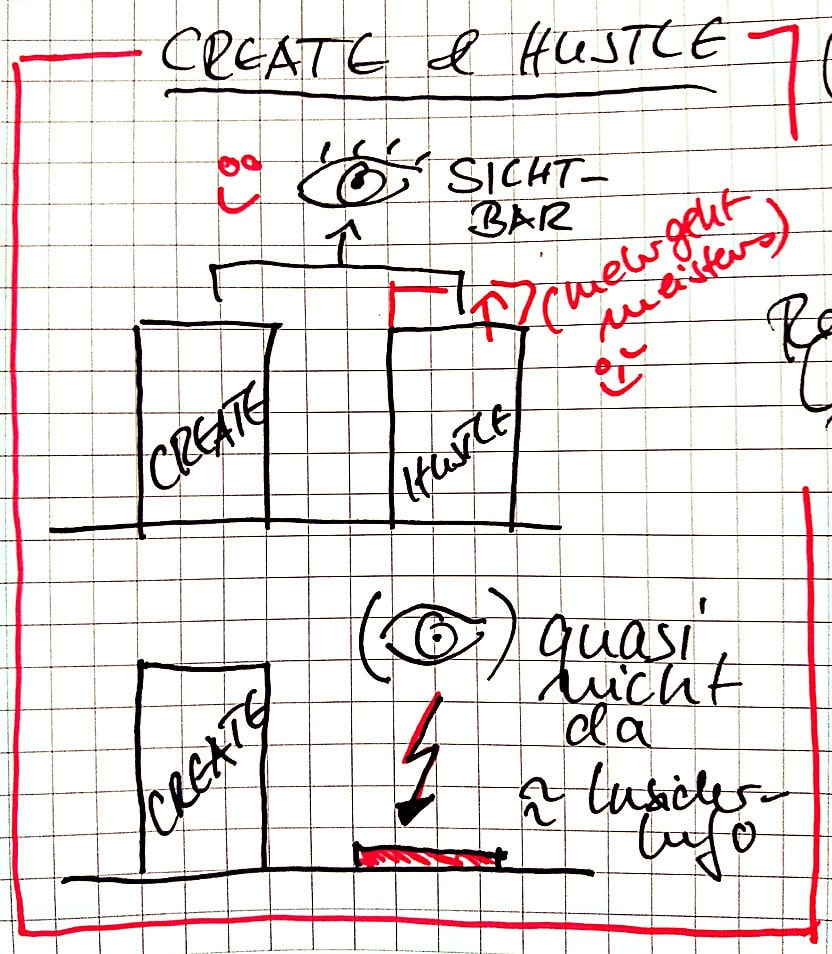 CREATE & HUSTLE
SICHT-
BAR
(mehr geht
meistens)
CREATE
HUSTLE
quasi
nicht
da
≈ Insider-
Info
CREATE